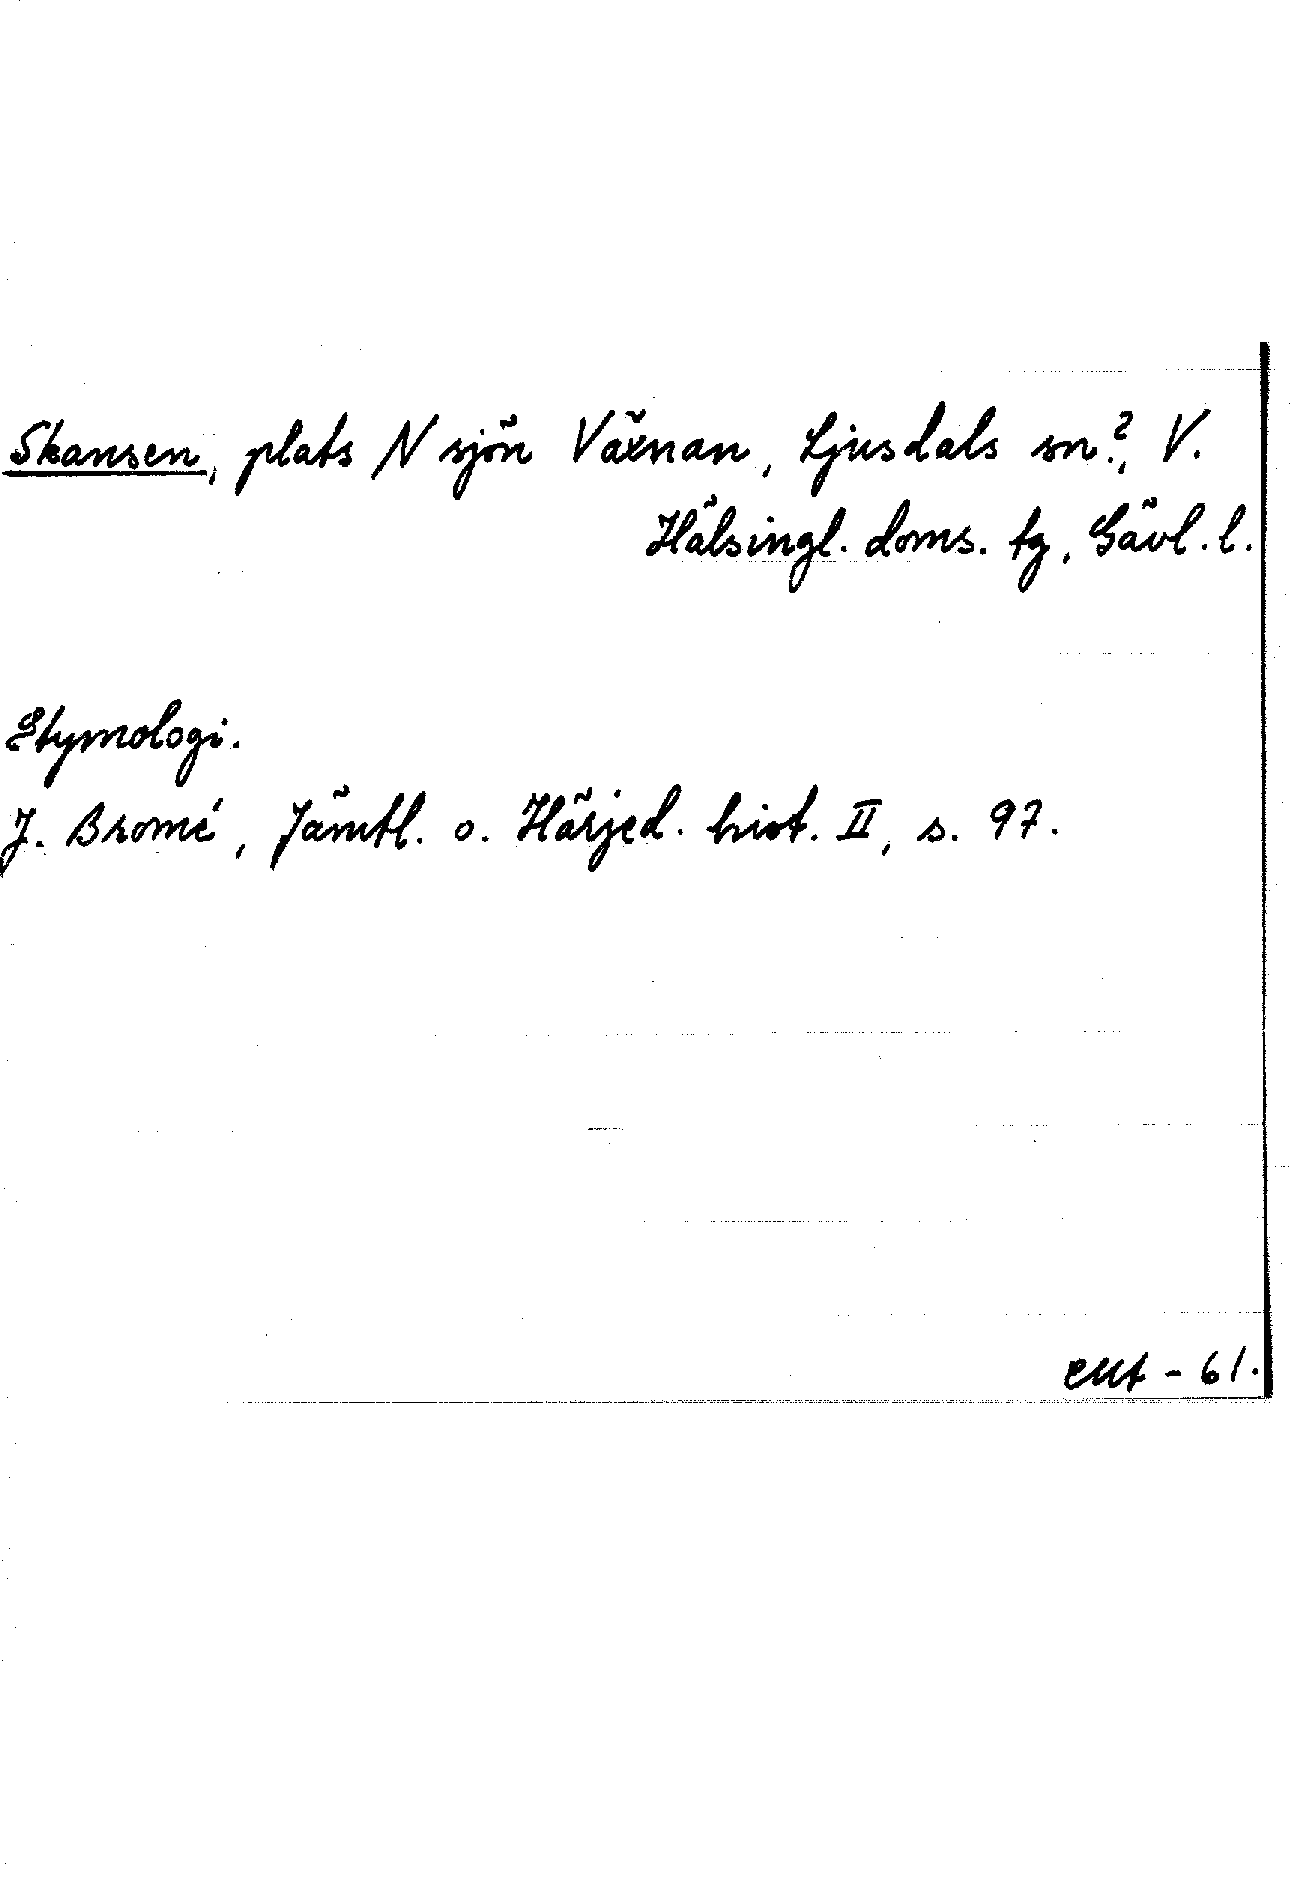 Skansen, plats N sjön Växnan, Ljusdals sn.?, V.
Hälsingl. doms. tg, Gävl. l.
Etymologi.
J. Bromé, Jämtl. o. Härjed. hist. II, s. 97.
- 61.